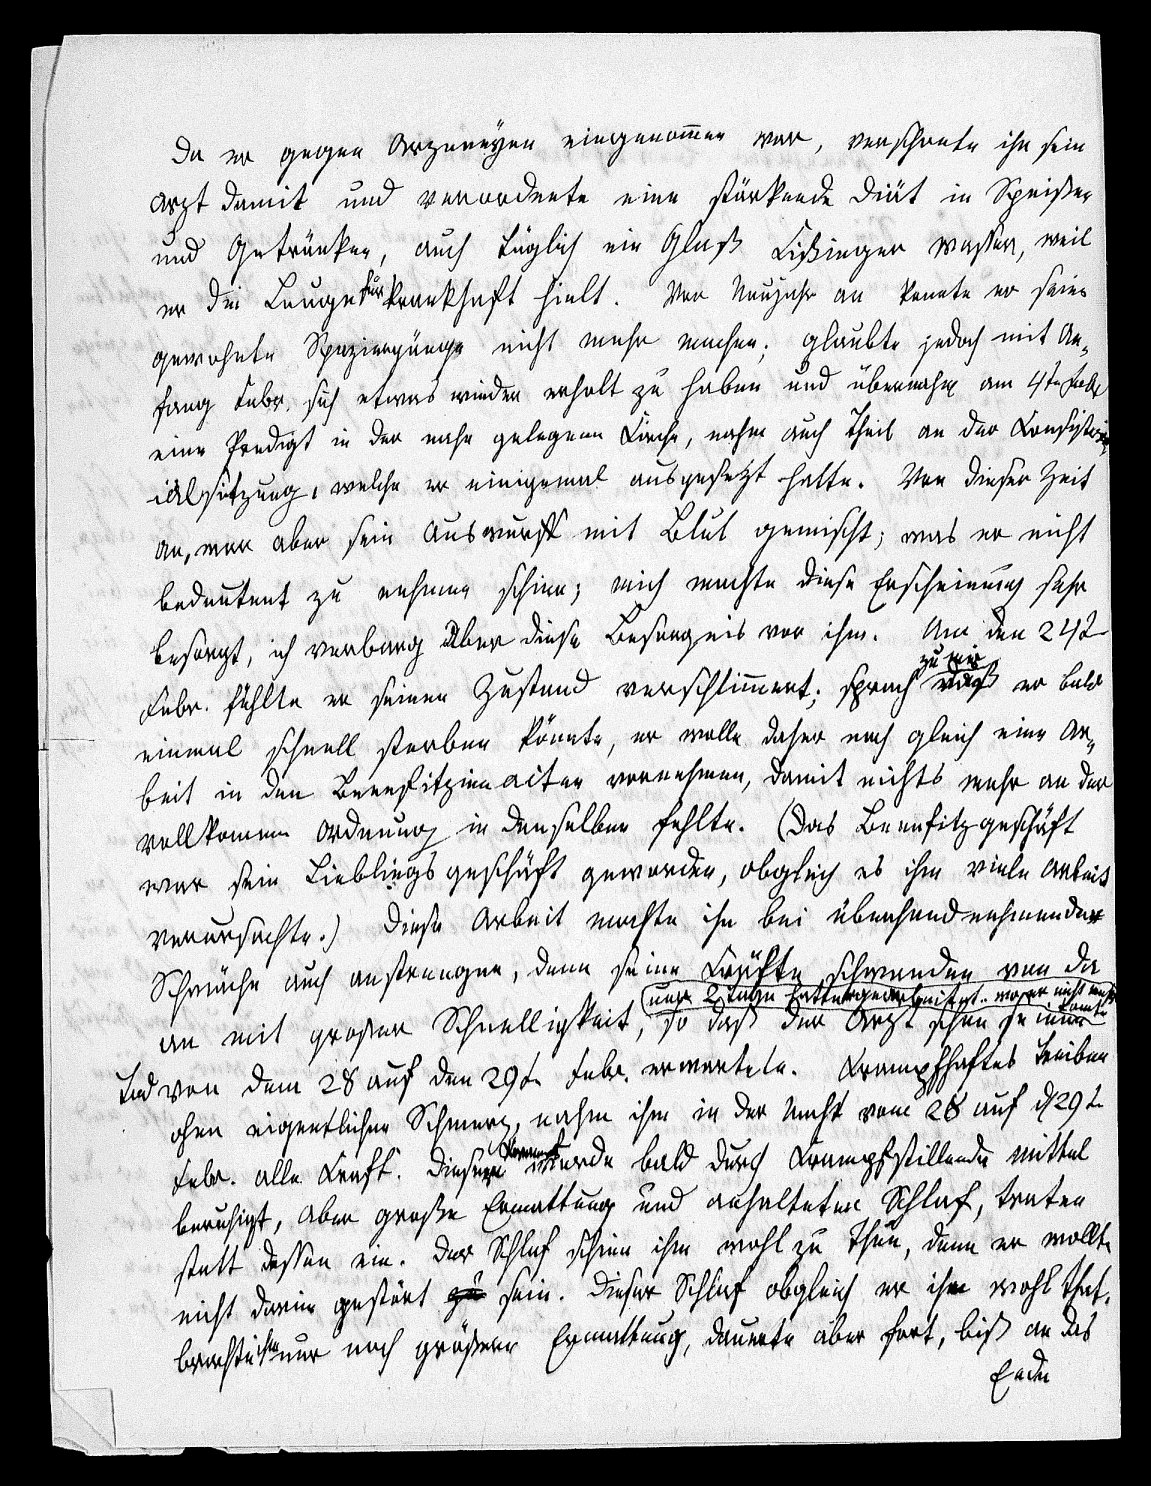 Da er gegen Arzneÿen eingenom̅en war, verschonte ihn sein
Arzt damit und verordnete eine stärkende Diät in Speißen
und Getränken, auch täglich ein Glaß Kißinger Waßer, weil
er die Lunge für krankhaft hielt. Von Neujahr an konte er seine
gewohnte Spaziergänge nicht mehr machen; glaubte jedoch mit An„
fang Febr. sich etwas wieder erholt zu haben und übernahm am 4t Febr
eine Predigt in der nahe gelegenen Kirche, nahm auch Theil an der Consistor„
ialsitzung, welche er einigemal ausgesetzt hatte. Von dieser Zeit
an, war aber sein Auswurff mit Blut gemischt; was er nicht
bedeutent zu nehmen schien; mich machte diese Erscheinung sehr
besorgt, ich verbarg aber diese Besorgnis vor ihm. Am den 24t
zu mir
Febr. fühlte er seinen Zustand verschlim̅ert; sprach daß er bald
einmal schnell sterben könnte, er wolle daher noch gleich eine Ar„
beit in den Benefitzien acten vornehmen, damit nichts mehr an der
vollkomen Ordnung in denselben fehlte. (Das Benefitzgeschäft
war sein Lieblingsgeschäft geworden, obgleich es ihm viele Arbeit
verursachte.) Diese Arbeit mochte ihn bei überhandnehmender
Schwäche auch anstrengen, denn seine Kräfte schwanden von da
nur 2 Tage hatte er gearbeitet.. wo er nicht mehr konte
an mit großer Schnelligkeit, so daß der Arzt schon seinen
Tod von dem 28 auf den 29t Febr. erwartete. Krampfhaftes Treiben
ohne eigentlichen Schmerz, nahm ihm in der Nacht vom 28 auf d 29t
Febr. alle Kraft. Dieser wurde bald durch Krampfstillende Mittel
beruhigt, aber große Ermattung und anhalteten Schlaf, traten
statt dessen ein. Der Schlaf schien ihm wohl zu thun, denn er wollte
nicht darin gestört zu sein. Dieser Schlaf obgleich er ihm wohl that,
brachte ihm nur noch größere Ermattung, dauerte aber fort, biß an das
Ende